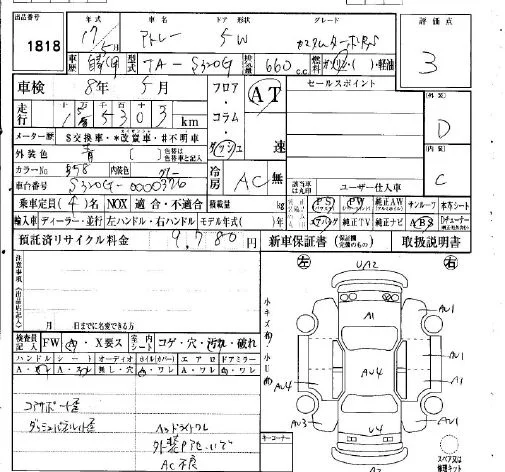 出品番号 年式 車名 ドア 形状 グレード 評価点
1818 17年5月 アトレー 5W カスタムターボRS 3
車歴 自家用 型式 TA-S320G 排気量 660 cc 燃料 ガソリン・軽油
車検 8年 5月 フロア・コラム・ダッシュ AT 速 セールスポイント 外装 D
走行 15303 km
メーター歴 $交換車・*改竄車・#不明車
外装色 青 色替は色替車と記入 内装 C
カラーNo. 内装色 グレー 冷房 AC 無
車台番号 S320G-0000376 該当車は丸囲 ユーザー仕入車
乗車定員(4)名 NOX 適合・不適合 積載量 kg PS PW 純正AW サンルーフ 本布シート
輸入車 ディーラー・並行 左ハンドル・右ハンドル モデル年式( ) エアバッグ 純正TV 純正ナビ ABS
預託済リサイクル料金 9,780円 新車保証書 取扱説明書
注意事項(出品店記入)
月 日までに名変できる方
左 右
UA2
AU1
A1
AU1
A1
AU4
AU4
AU3
AU1
U4
小キズ有 小凹有
検査員記入 FW A・X要ス 室内シート コゲ・穴・汚れ・破れ
ハンドル シート オーディオ ホイル(カバー) エアロ ドアミラー
無し・穴 A・ワレ A・ワレ A・ワレ
コアサポート歪
ダッシュパネル歪
外装
AC不良
キーコーナー
スペア又は修理キット